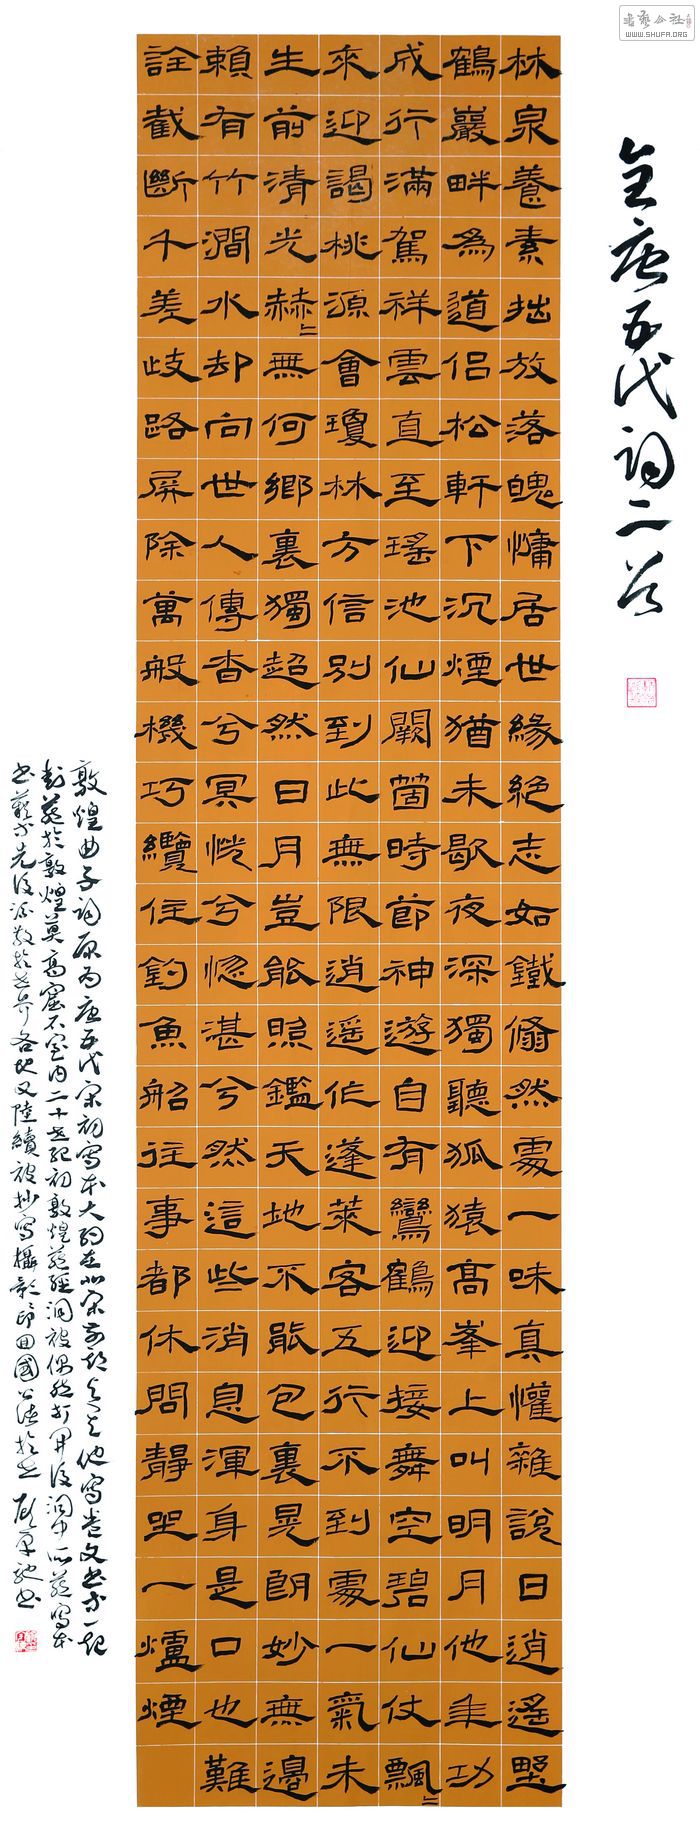 書藝公社
WWW.SHUFA.ORG
全唐五代詞二首
林泉養素拙放落魄慵居世緣絕志如鐵翛然處一味真懽雜說日逍遙墅
鶴巖畔為道侶松軒下沉煙猶未歇夜深獨聽狐猿高峯上叫明月他年功
成行滿駕祥雲直至瑤池仙闕箇時節神遊自有鸞鶴迎接舞空碧仙仗飄〻
來迎謁桃源會瓊林方信別到此無限逍遙作蓬萊客五行不到處一氣未
生前清光赫〻無何鄉裏獨超然日月豈能照鑑天地不能包裏晃朗妙無邊
賴有竹澗水却向世人傳杳兮冥恍兮惚湛兮然這些消息渾身是口也難
詮截斷千差歧路屏除萬般機巧纜住釣魚船往事都休問靜坐一爐煙
敦煌曲子詞原为唐五代宋初寫本大約在北宋前期與其他寫卷文书等一起
封藏於敦煌莫高窟石室内二十世紀初敦煌藏經洞被偶然打開後洞中所藏寫本
书籍等先後流散於世界各地又陸續被抄寫攝影印回國公佈於世